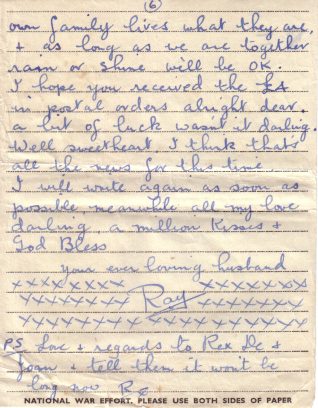 (6)
own family lives what they are,
+ as long as we are together
rain or shine will be OK.
I hope you received the £4
in postal orders alright dear.
a bit of luck wasn't it darling.
Well sweetheart, I think that's
all the news for this time.
I will write again as soon as
possible, meanwhile all my love
darling, a million kisses +
God Bless
Your ever loving husband
xxxx xxxx xxxxxxx
xxxxxxx Ray xxxxxxx
xxxxxxxxxxxxxxxxxx
PS Love + regards to Rex +
Joan + tell them it won't be
long now R
NATIONAL WAR EFFORT. PLEASE USE BOTH SIDES OF PAPER